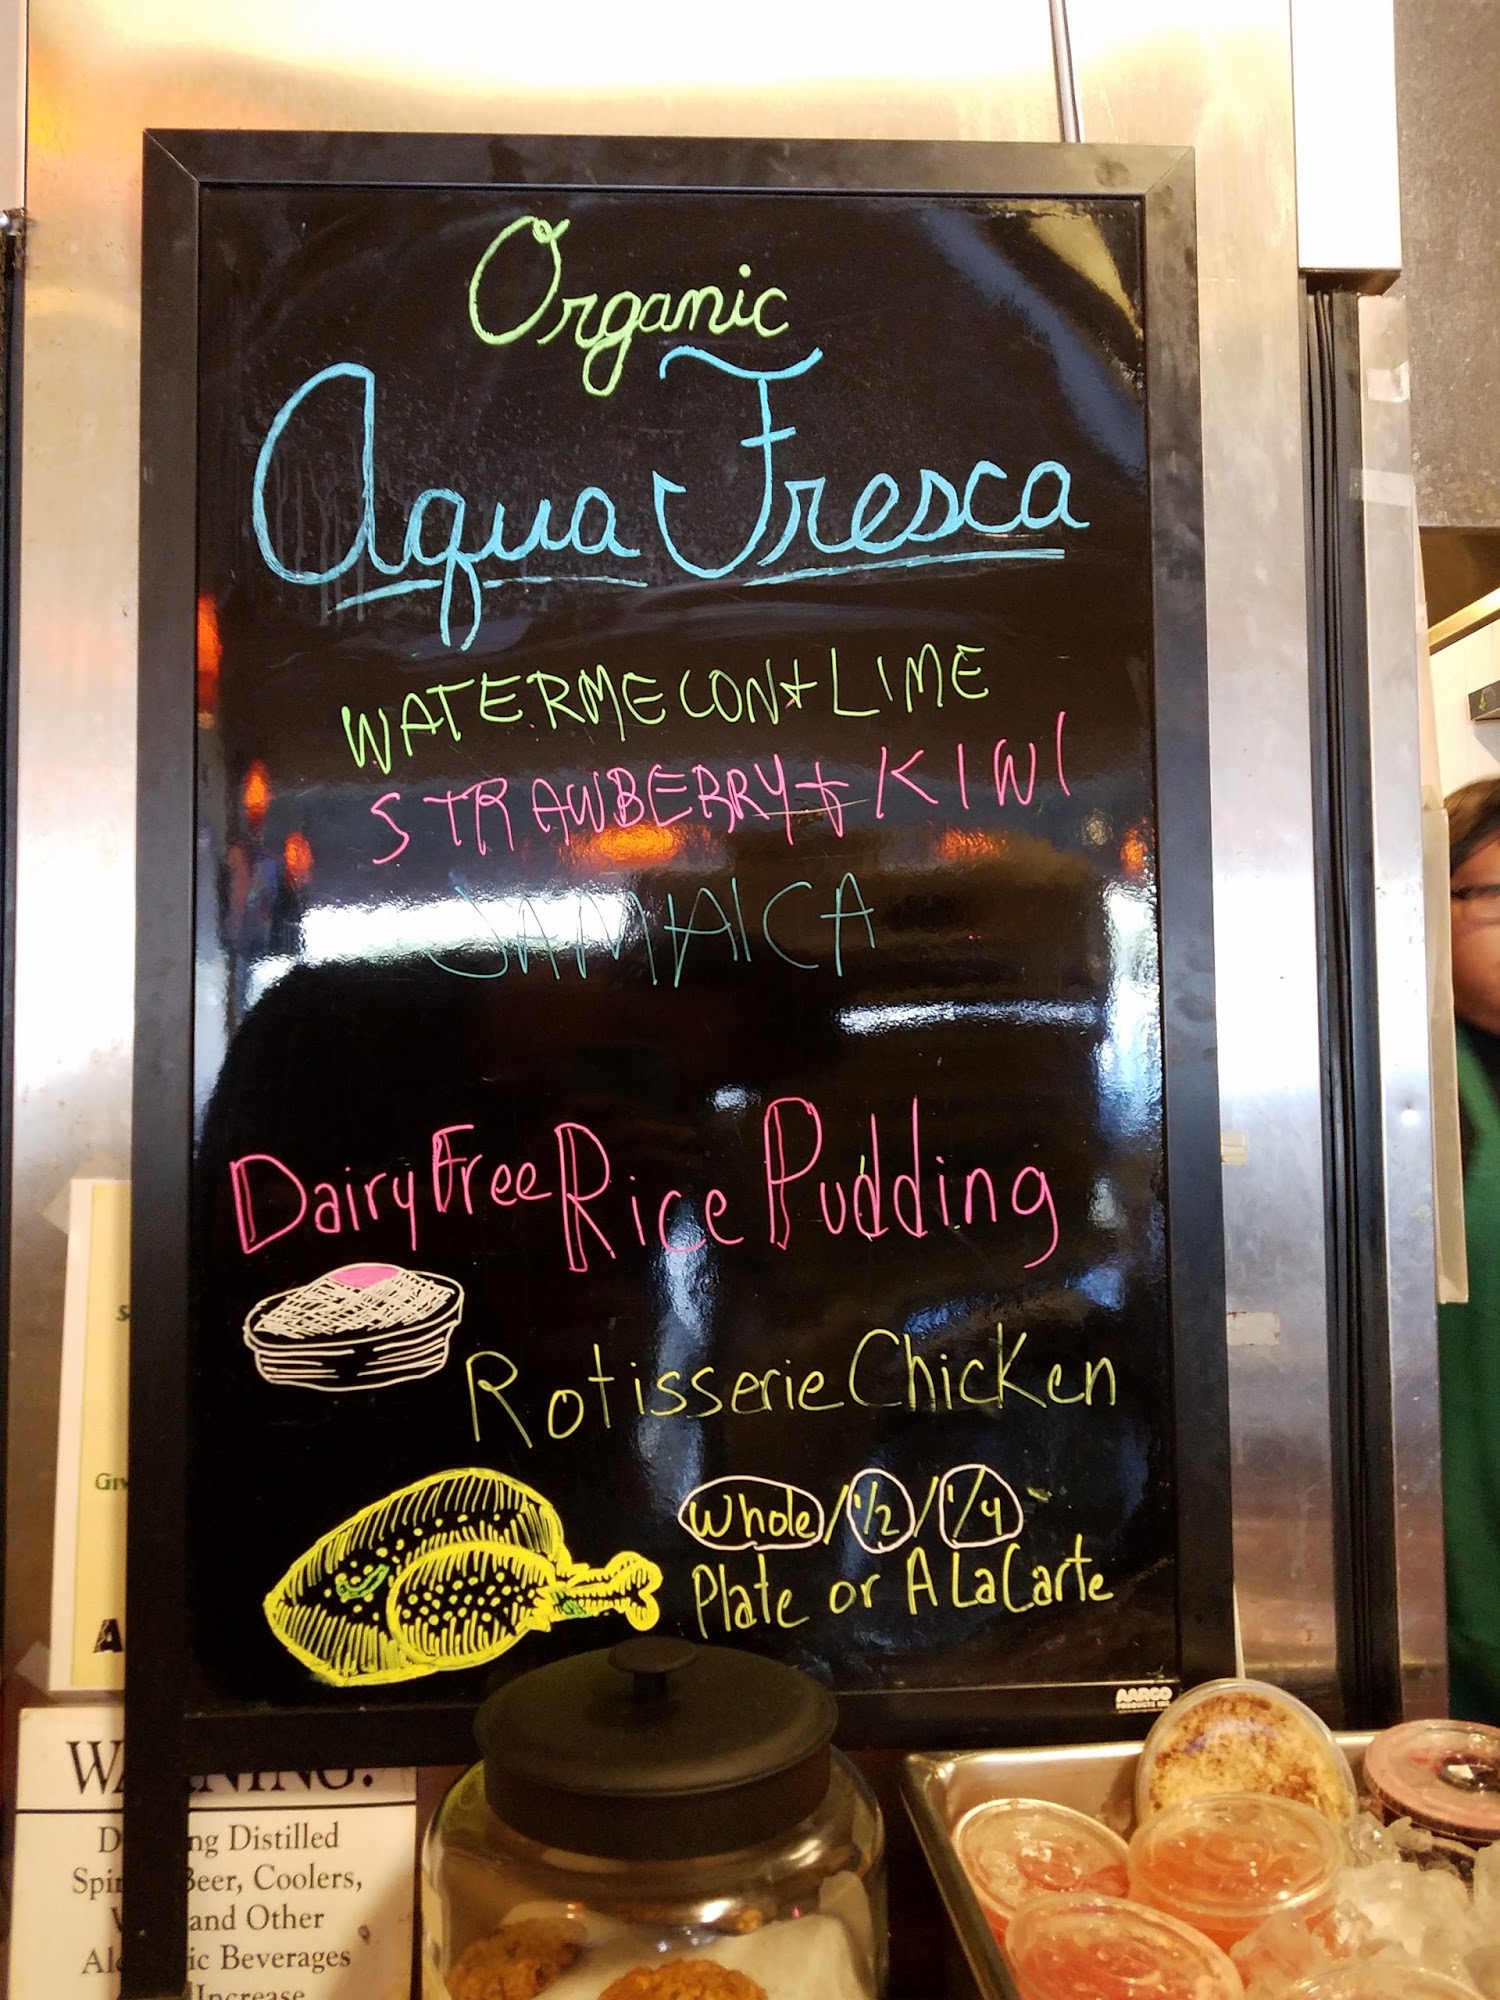 Organic
Aqua Fresca
WATERMELON + LIME
STRAWBERRY + KIWI
JAMAICA
Dairy Free Rice Pudding
Rotisserie Chicken
Whole / 1/2 / 1/4
Plate or A La Carte
AARCO
PRODUCTS INC.
Distilled
Beer, Coolers,
and Other
Beverages
Increase